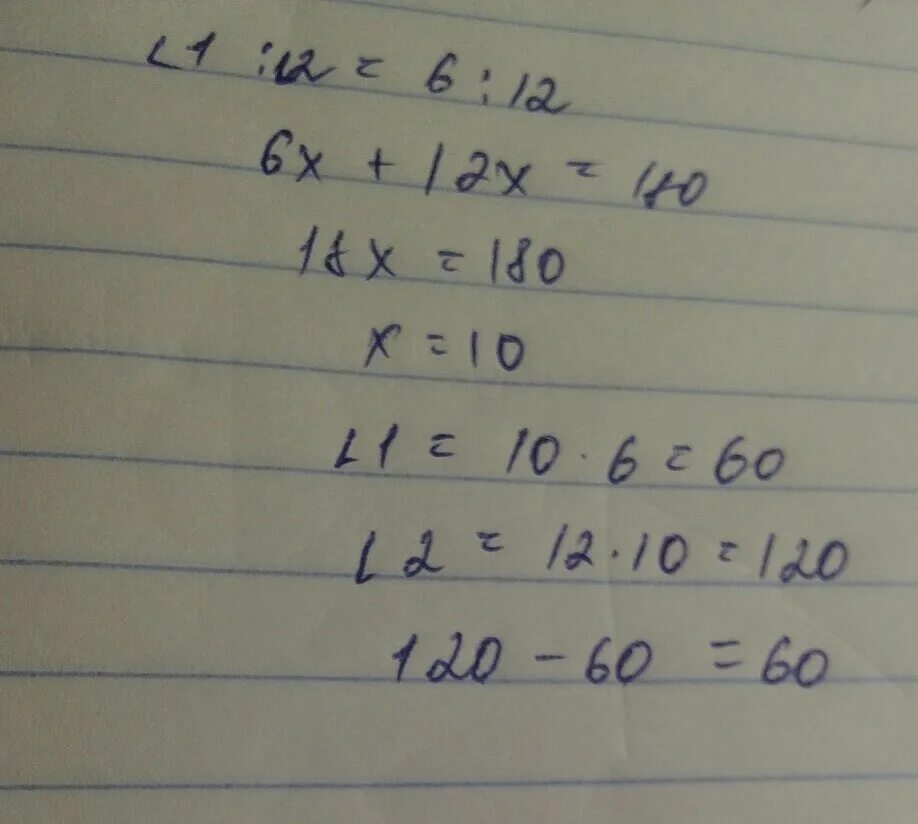 ∠1 :∠2 = 6 : 12
6x + 12x = 180
18x = 180
x = 10
∠1 = 10 · 6 = 60
∠2 = 12 · 10 = 120
120 - 60 = 60